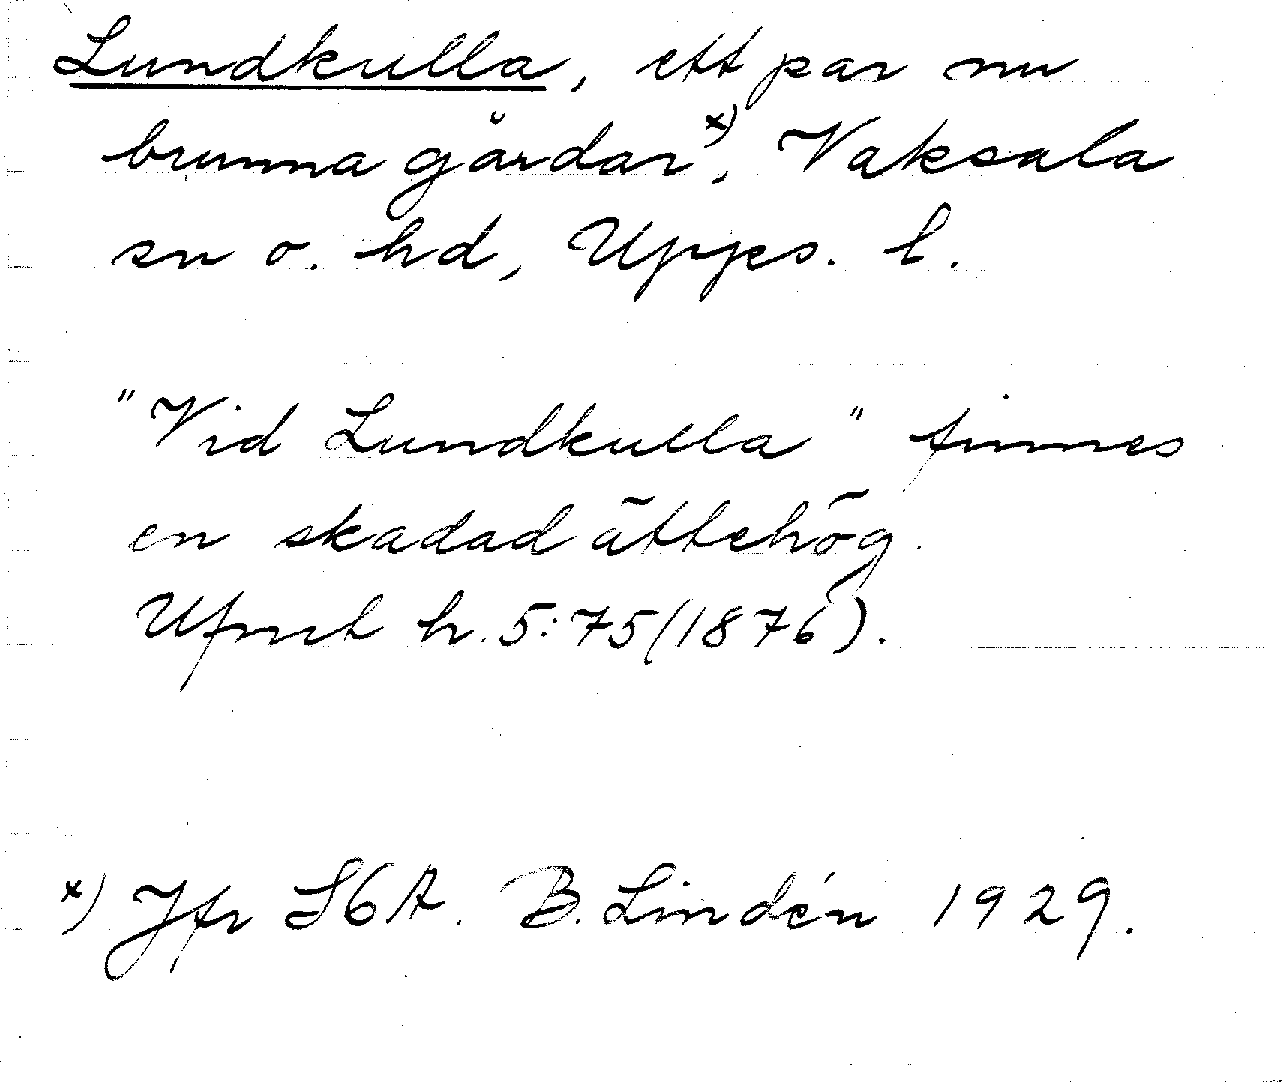 Lundkulla, ett par nu
brunna gårdar x), Vaksala
sn o. hd, Upps. l.
"Vid Lundkulla" finnes
en skadad ättehög.
Ufmt h. 5:75 (1876).
x) Jfr S6A. B. Lindén 1929.